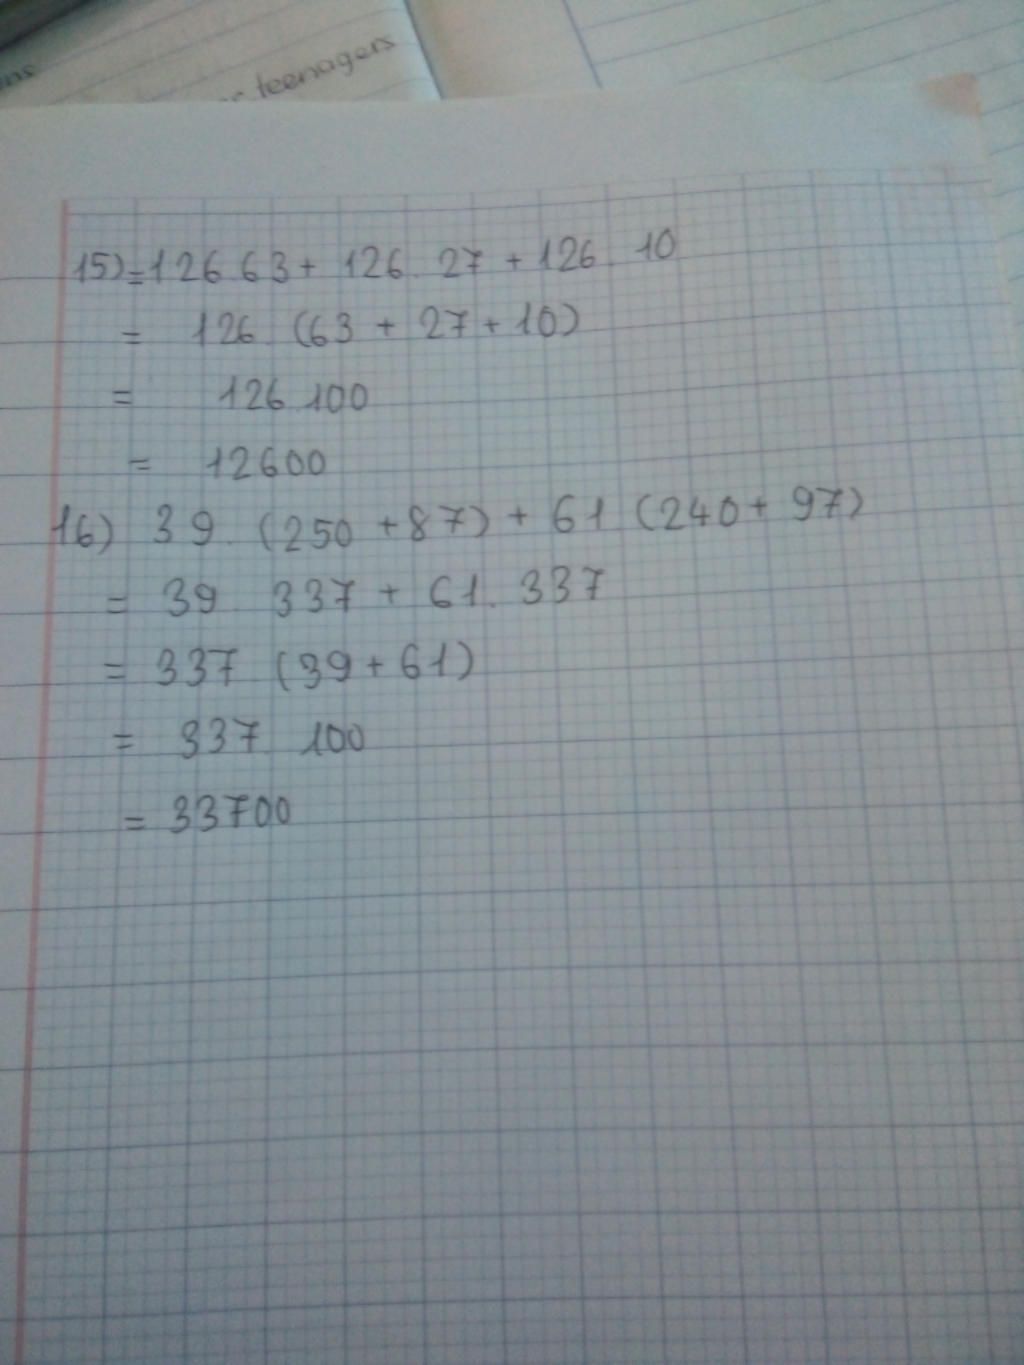 ns
teenagers
15) = 126 63 + 126. 27 + 126. 10
= 126 (63 + 27 + 10)
= 126.100
= 12600
16) 39. (250 + 87) + 61 (240 + 97)
= 39 337 + 61. 337
= 337 (39 + 61)
= 337 100
= 33700